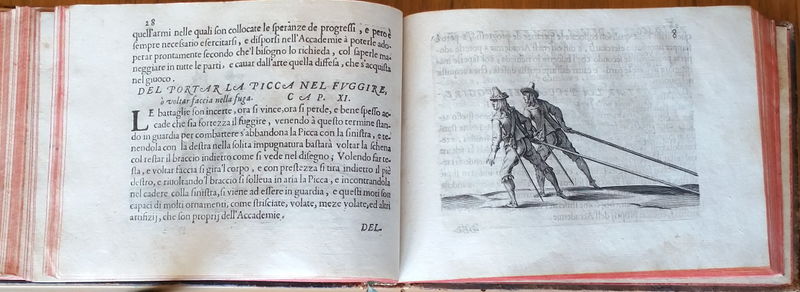 28
quell'armi nelle quali son collocate le speranze de progressi, e però è
sempre necessario esercitarsi, e disporsi nell'Accademie à poterle ado-
perar prontamente secondo che l'bisogno lo richieda, col saperle ma-
neggiare in tutte le parti, e cauar dall'arte quella diffesa, che s'acquista
nel giuoco.
DEL PORTAR LA PICCA NEL FVGGIRE,
ò voltar faccia nella fuga. CAP. XI.
LE battaglie son incerte, ora si vince, ora si perde, e bene spesso ac-
cade che sia fortezza il fuggire, venendo à questo termine stan-
do in guardia per combattere s'abbandona la Picca con la sinistra, e te-
nendola con la destra nella solita impugnatura bastarà voltar la schena
col restar il braccio indietro come si vede nel disegno; Volendo far te-
sta, e voltar faccia si gira l'corpo, e con prestezza si tira indietro il piè
destro, e riuoltando l'braccio si solleua in aria la Picca, e incontrandola
nel cadere colla sinistra, si viene ad essere in guardia, e questi moti son
capaci di molti ornamenti, come strisciate, volate, meze volate, ed altri
artifizij, che son proprij dell'Accademie.
DEL.
8